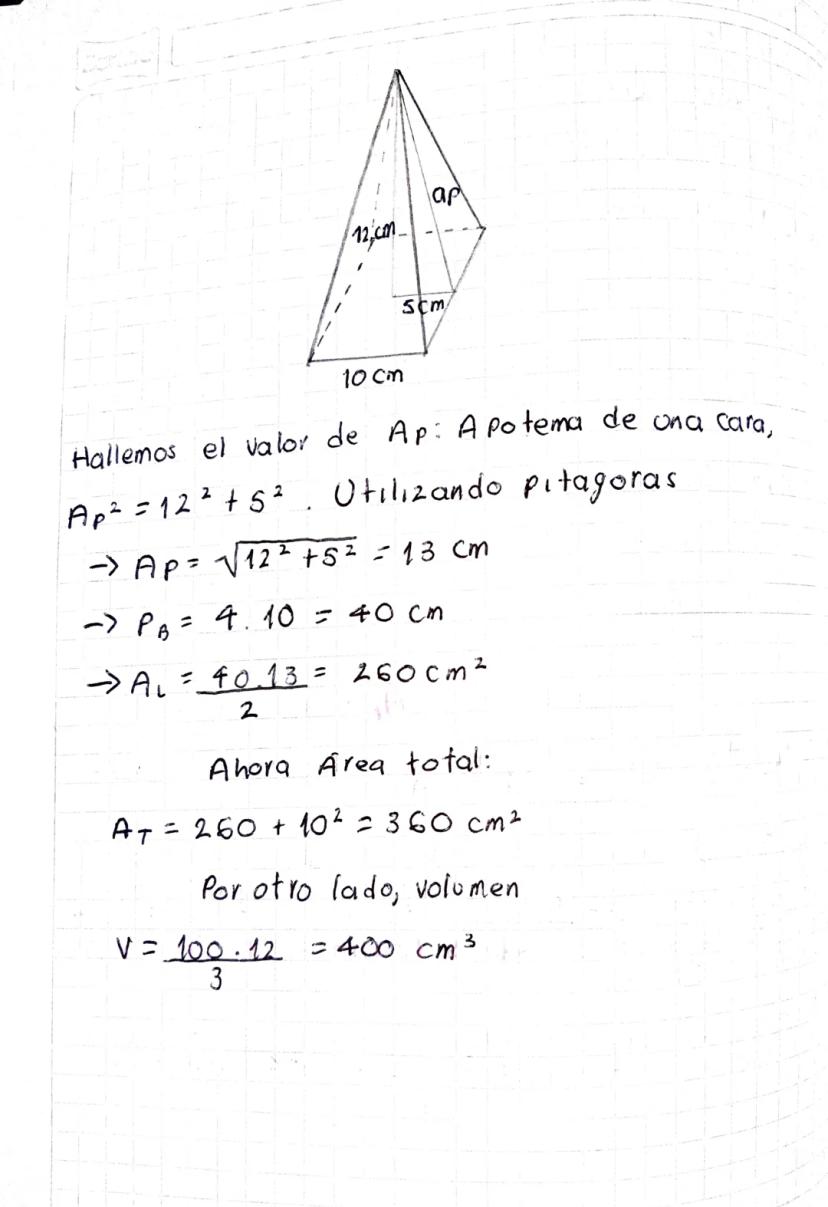 ap
12 cm
5 cm
10 cm
Hallemos el valor de Ap: Apotema de una cara,
Ap² = 12² + 5². Utilizando pitagoras
→ Ap = √12² + 5² = 13 cm
→ P_B = 4 . 10 = 40 cm
→ A_L = 40.13 = 260 cm²
2
Ahora Área total:
A_T = 260 + 10² = 360 cm²
Por otro lado, volumen
V = 100 . 12 = 400 cm³
3